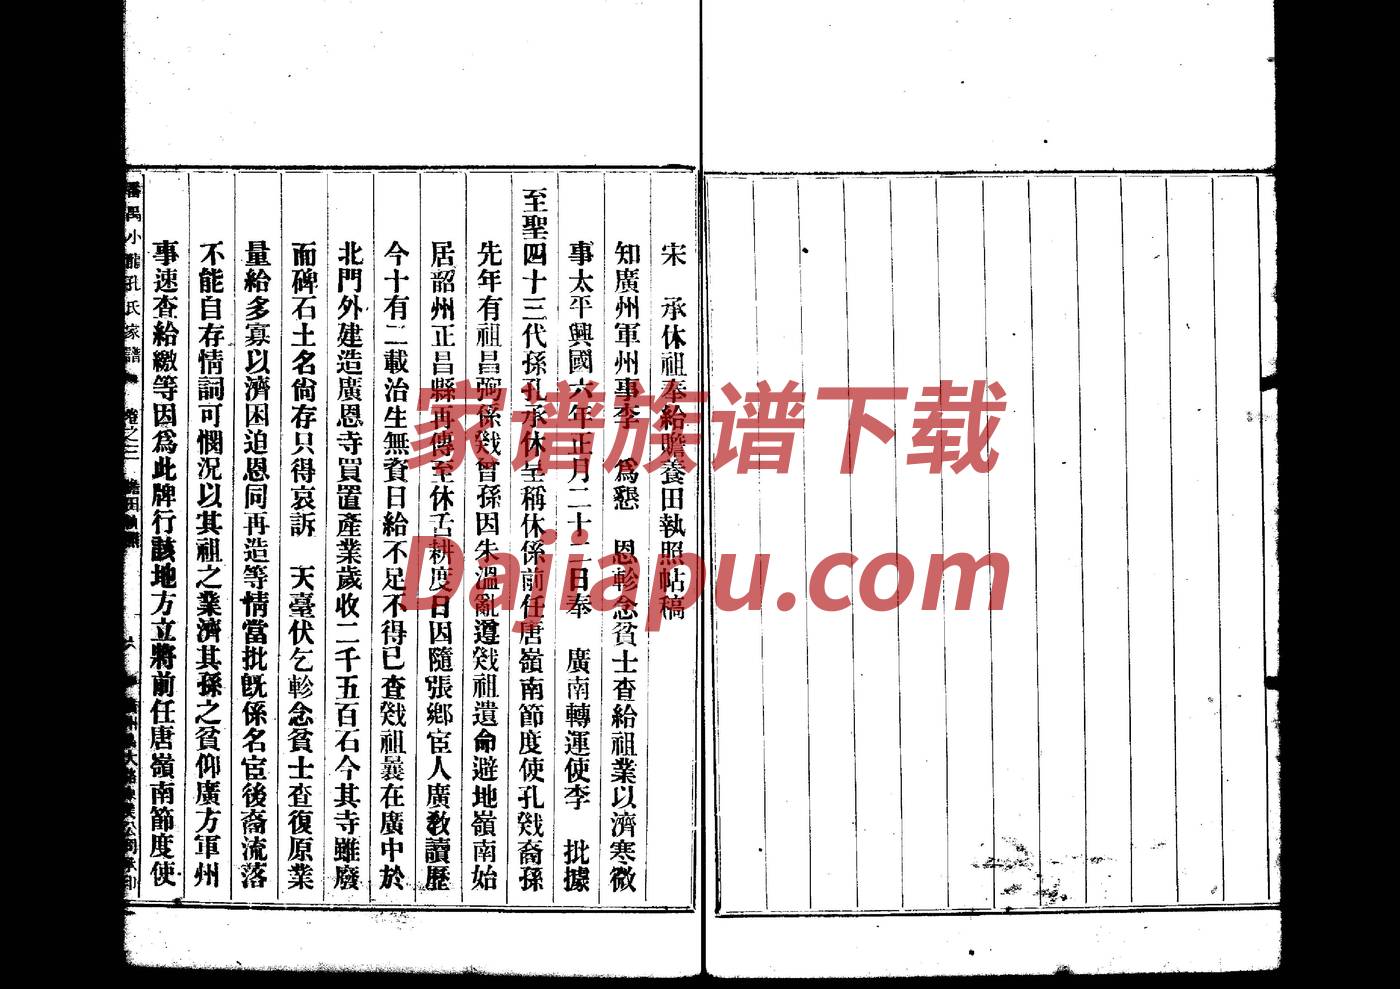 宋　承休祖奉給贍養田執照帖稿
知廣州軍州事李　為懇　恩軫念貧士查給祖業以濟寒微
事太平興國六年正月二十二日奉　廣南轉運使李　批據
至聖四十三代孫孔承休呈稱休係前任唐嶺南節度使孔戣裔孫
先年有祖昌弼係戣曾孫因朱溫亂遵戣祖遺命避地嶺南始
居韶州正昌縣再傳至休舌耕度日因隨張鄉宦人廣教讀歷
今十有二載治生無資日給不足不得已查戣祖曩在廣中於
北門外建造廣恩寺買置產業歲收二千五百石今其寺雖廢
而碑石土名尙存只得哀訴　天臺伏乞軫念貧士查復原業
量給多寡以濟困迫恩同再造等情當批旣係名宦後裔流落
不能自存情詞可憫況以其祖之業濟其孫之貧仰廣方軍州
事速查給繳等因為此牌行該地方立將前任唐嶺南節度使
番禺小龍孔氏家譜　卷之三　六
家谱族谱下载
Dajiapu.com